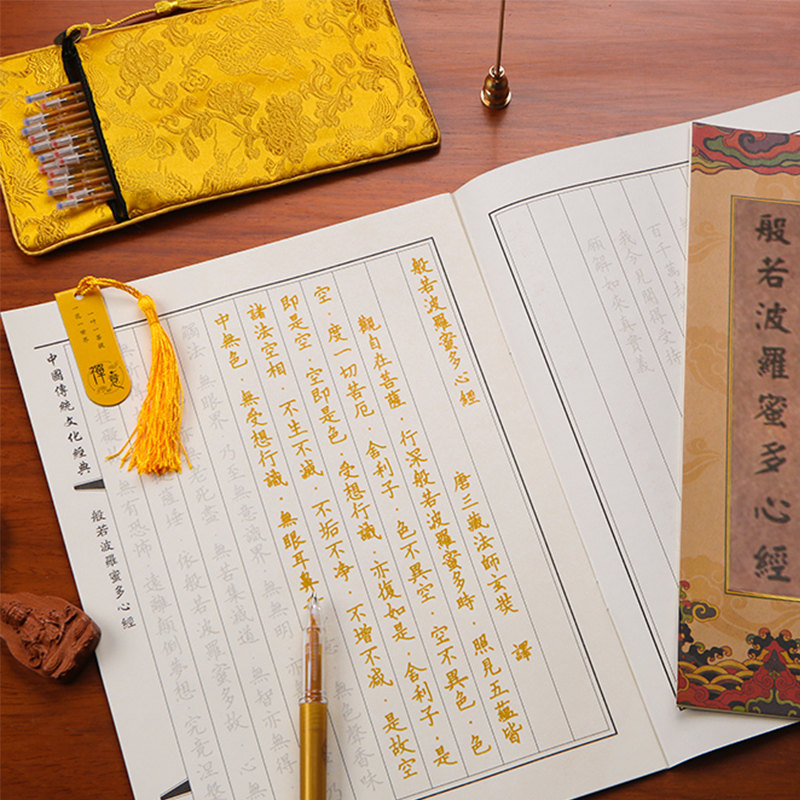 般若波羅蜜多心經
百千萬劫
我今見聞得受持
願解如來真實義
般若波羅蜜多心經 唐三藏法師玄奘 譯
觀自在菩薩·行深般若波羅蜜多時·照見五蘊皆
空·度一切苦厄·舍利子·色不異空·空不異色·色
即是空·空即是色·受想行識·亦復如是·舍利子·是
諸法空相·不生不滅·不垢不净·不增不減·是故空
中無色·無受想行識·無眼耳鼻 無色聲香味
觸法·無眼界·乃至無意識界·無無明·亦
老死盡·無苦集滅道·無智亦無得
薩埵·依般若波羅蜜多故·心無
罣礙 無有恐怖·遠離顛倒夢想·究竟涅槃
一叶一菩提
一花一世界
禪意
中國傳統文化經典
般若波羅蜜多心經